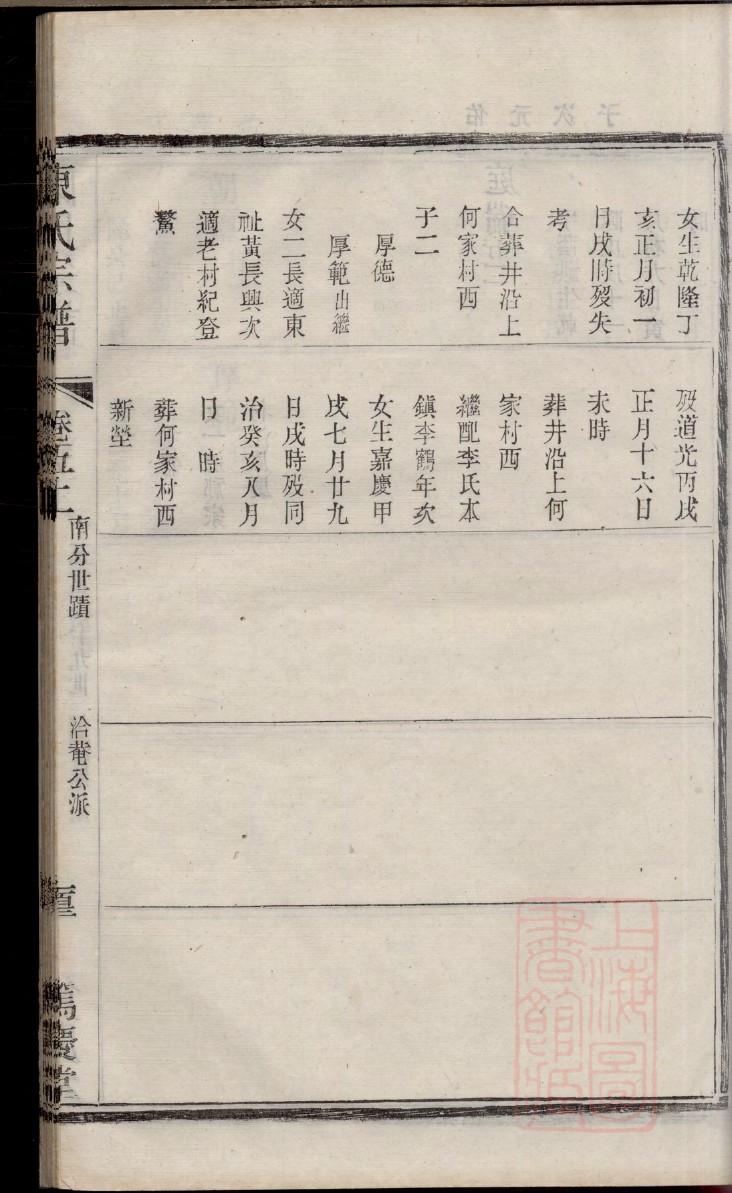 女生乾隆丁
亥正月初一
日戌時歿失
考
合葬井沿上
何家村西
子二
厚德
厚範出繼
女二長適東
祉黃長興次
適老村紀登
鰲
歿道光丙戌
正月十六日
未時
葬井沿上何
家村西
繼配李氏本
鎮李鶴年次
女生嘉慶甲
戌七月廿九
日戌時歿同
治癸亥八月
日 時
葬何家村西
新塋
陳氏宗譜
卷五上
南分世蹟
洽菴公派
篤慶堂
上海圖
書館藏